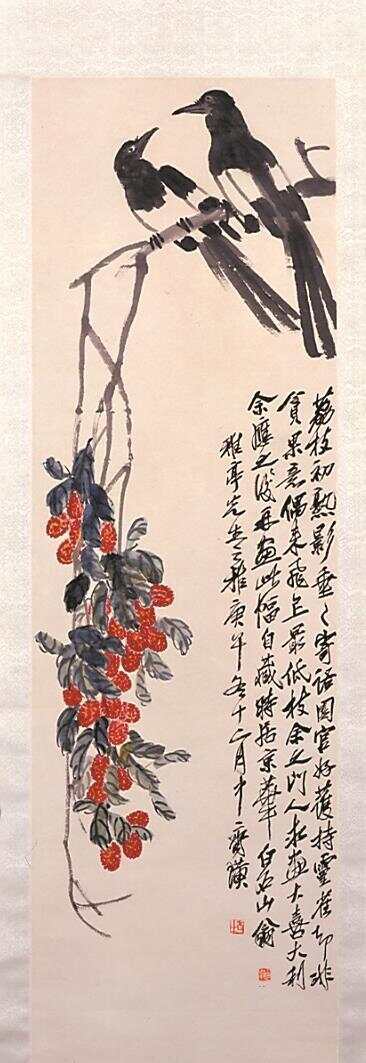 荔枝初熟影垂々寄语园官好护持灵雀却非
贪果意偶来飞上最低枝余之门人求画大喜大利
余应之后再画此幅自藏时居京华白石山翁
雅亭先生雅庚午冬十二月中齐璜